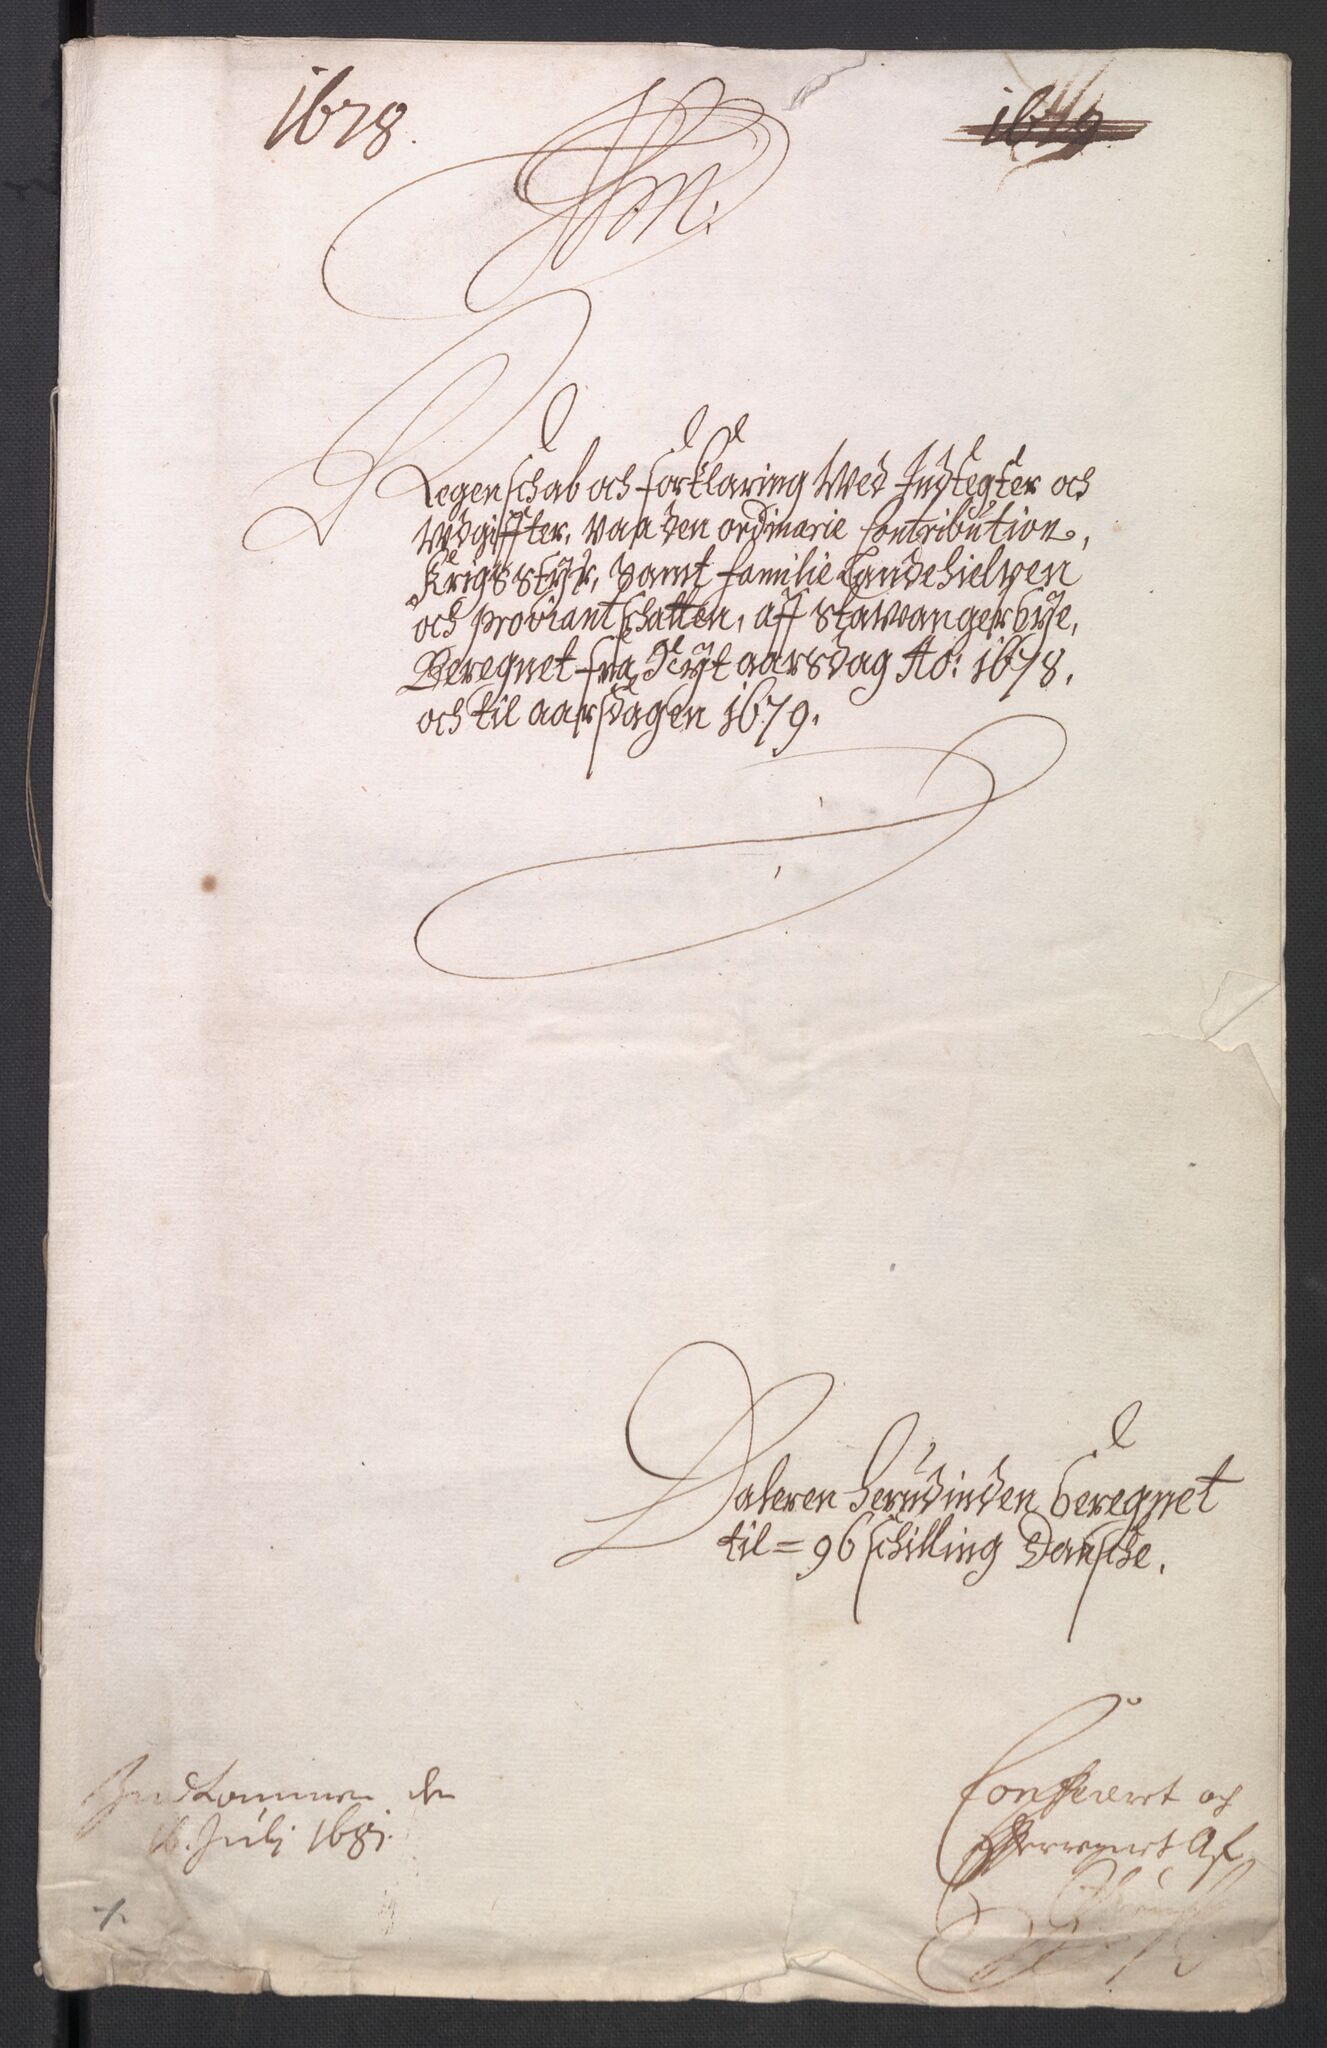 1678.
1679
Regenschab och forklaring Wed Indtegter och
Wdgiffter, paa den ordinarie Contribution,
Krigsstyr, Samt familie Landehielpen
och proviantschatten, aff Stavanger bye,
Beregnet fra Nyt aarsdag Ao: 1678.
och til aarsdagen 1679.
Daleren herudinden beregnet
til = 96 schilling Dansche.
Indkommen den
16. Julij 1681.
Confereret och
Efterregnet Af